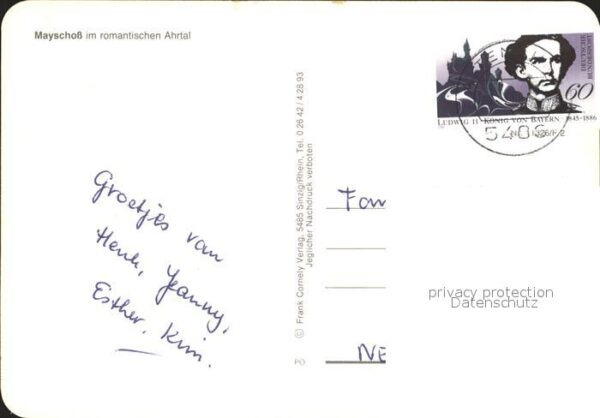 Mayschoß im romantischen Ahrtal
Groetjes van
Henk, Jeanny,
Esther, Kim.
© Frank Cornely Verlag, 5485 Sinzig/Rhein, Tel. 0 26 42 / 4 28 93
Jeglicher Nachdruck verboten
PO
DEUTSCHE
BUNDESPOST
60
LUDWIG II · KÖNIG VON BAYERN 1845-1886
Fam
NE
privacy protection
Datenschutz